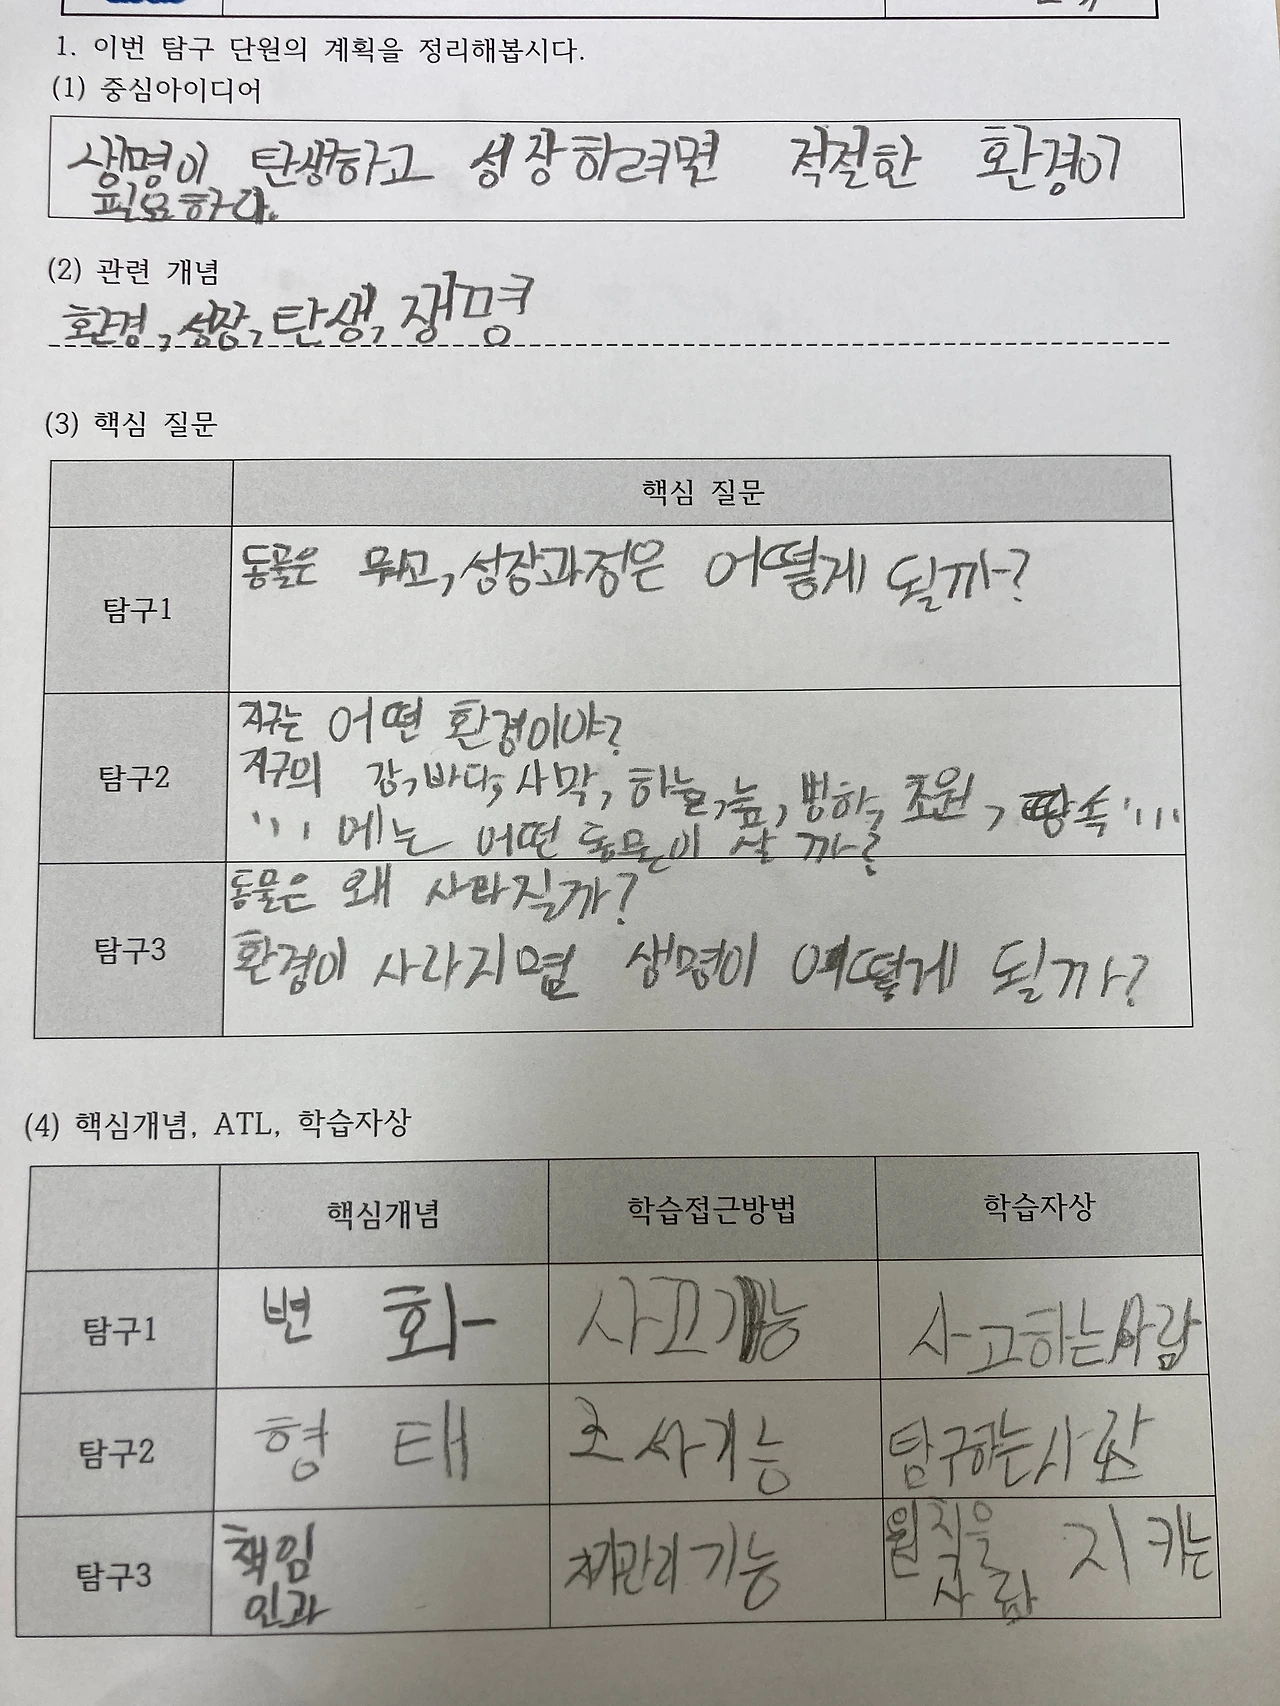 1. 이번 탐구 단원의 계획을 정리해봅시다.
(1) 중심아이디어
생명이 탄생하고 성장하려면 적절한 환경이
필요하다.
(2) 관련 개념
환경, 성장, 탄생, 생명
(3) 핵심 질문
핵심 질문
탐구1
동물은 뭐고, 성장과정은 어떻게 될까?
탐구2
지구는 어떤 환경이야?
지구의 강, 바다, 사막, 하늘, 늪, 빙하, 초원, 땅속 ...
... 에는 어떤 동물이 살까?
탐구3
동물은 왜 사라질까?
환경이 사라지면 생명이 어떻게 될까?
(4) 핵심개념, ATL, 학습자상
핵심개념 학습접근방법 학습자상
탐구1 변화 사고기능 사고하는사람
탐구2 형태 조사기능 탐구하는사람
탐구3 책임 관리기능 원칙을 지키는
인과 사람